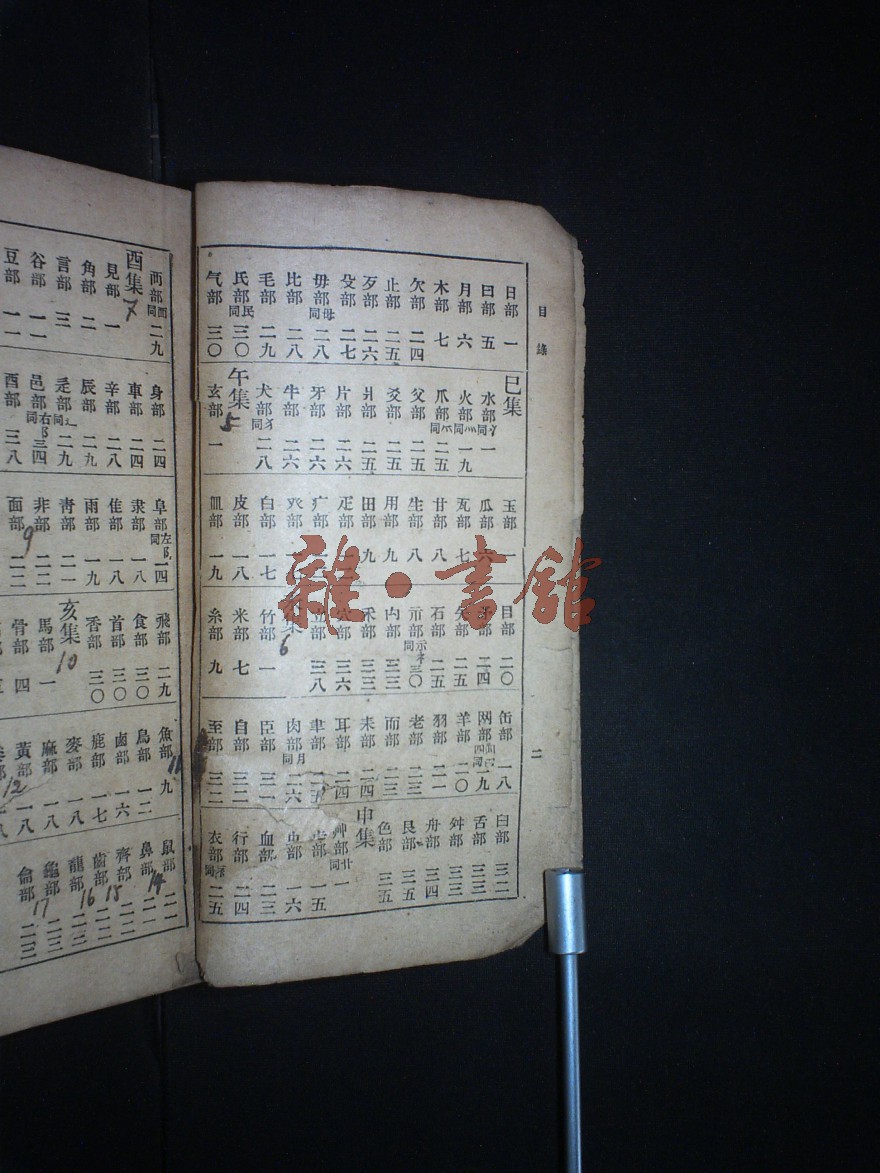 目錄
日部 一
曰部 五
月部 六
木部 七
欠部 二四
止部 二五
歹部 二六
殳部 二七
毋部 母同 二八
比部 二八
毛部 二九
氏部 民同 三〇
气部 三〇
巳集
水部 氵同 一
火部 灬同 一九
爪部 爫同 二五
父部 二五
爻部 二五
爿部 二五
片部 二六
牙部 二六
牛部 二六
犬部 犭同 二八
午集 5
玄部 一
玉部 一
瓜部
瓦部 七
甘部 八
生部 八
用部 九
田部 九
疋部
疒部
癶部
白部 一七
皮部 一八
皿部 一九
目部 二〇
矛部 二四
矢部 二五
石部 二五
示部 三〇
禸部 三三
禾部 三三
穴部 三六
立部 三八
集 6
竹部 一
米部 七
糸部 九
缶部 一八
网部 一九
羊部 二〇
羽部 二一
老部 二三
而部 二三
耒部 二四
耳部 二四
聿部
肉部 月同 二六
臣部 三一
自部 三二
至部 三二
臼部 三二
舌部 三三
舛部 三三
舟部 三四
艮部 三五
色部 三五
申集
艸部 艹同 一
虍部 一五
虫部 一六
血部 二三
行部 二四
衣部 衤同 二五
二
襾部 西同 二九
酉集 7
見部 一
角部 二
言部 三
谷部 一一
豆部 一一
身部 二四
車部 二四
辛部 二八
辰部 二九
辵部 辶同 二九
邑部 右阝同 三四
酉部 三八
阜部 左阝同 一四
隶部 一八
隹部 一八
雨部 一九
靑部 二一
非部 二二
面部 二二
9
飛部 二九
食部 三〇
首部 三〇
香部 三〇
亥集 10
馬部 一
骨部 四
魚部 九
鳥部 一二
鹵部 一六
鹿部 一七
麥部 一八
麻部 一八
黃部 一八
12
鼠部 二一
鼻部 二一
齊部 二二
齒部 二二
龍部 二三
龜部 二三
龠部 二三
14
15
16
17
雜·書館